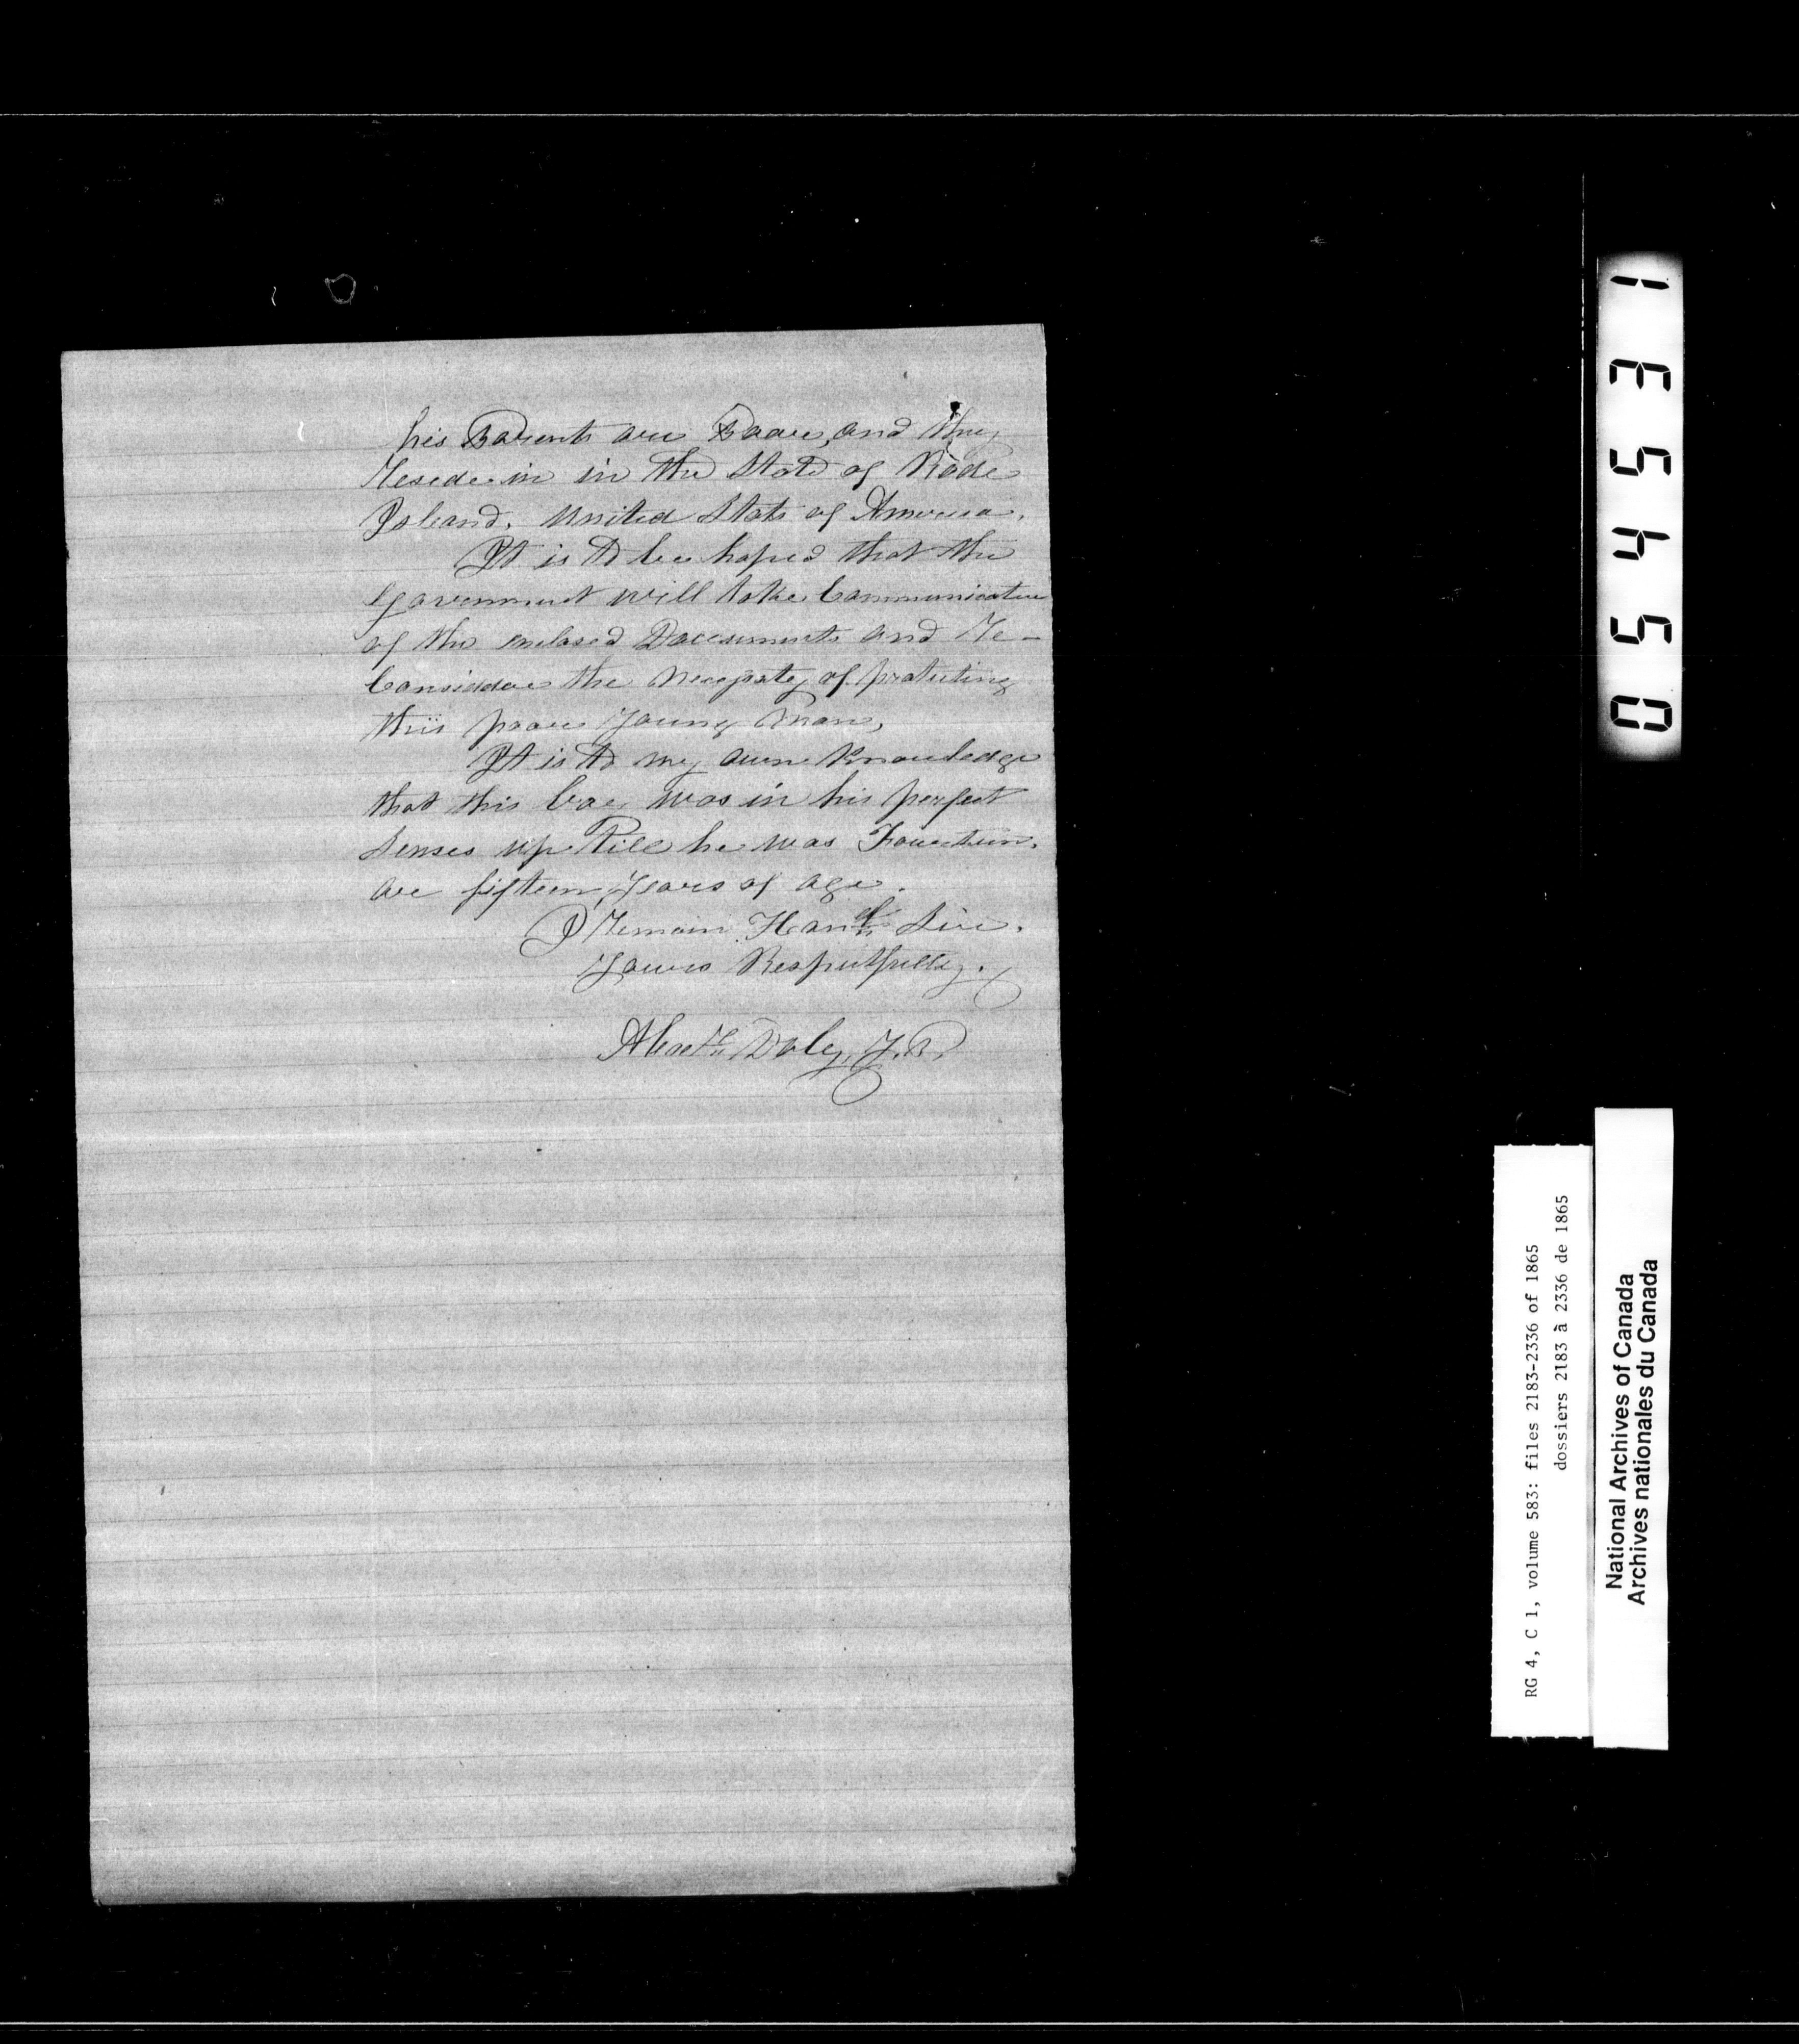 his Parents are Poore, and they
Resede in in the State of Rode
Island, United State of America.
It is to bee hoped that the
Government will take Communication
of the enclosed Doccuments and Re-
Considder the Necessity of protecting
this poore Young Man,
It is to my own Knowledge
that this boy was in his perfect
Senses up till he was Fourteen,
ore fifteen, Years of age.
I Remain Honble Sir.
Yours Respectfully.
Alexdr. Daly, J.P.
054531
RG 4, C 1, volume 583: files 2183-2336 of 1865
dossiers 2183 à 2336 de 1865
National Archives of Canada
Archives nationales du Canada